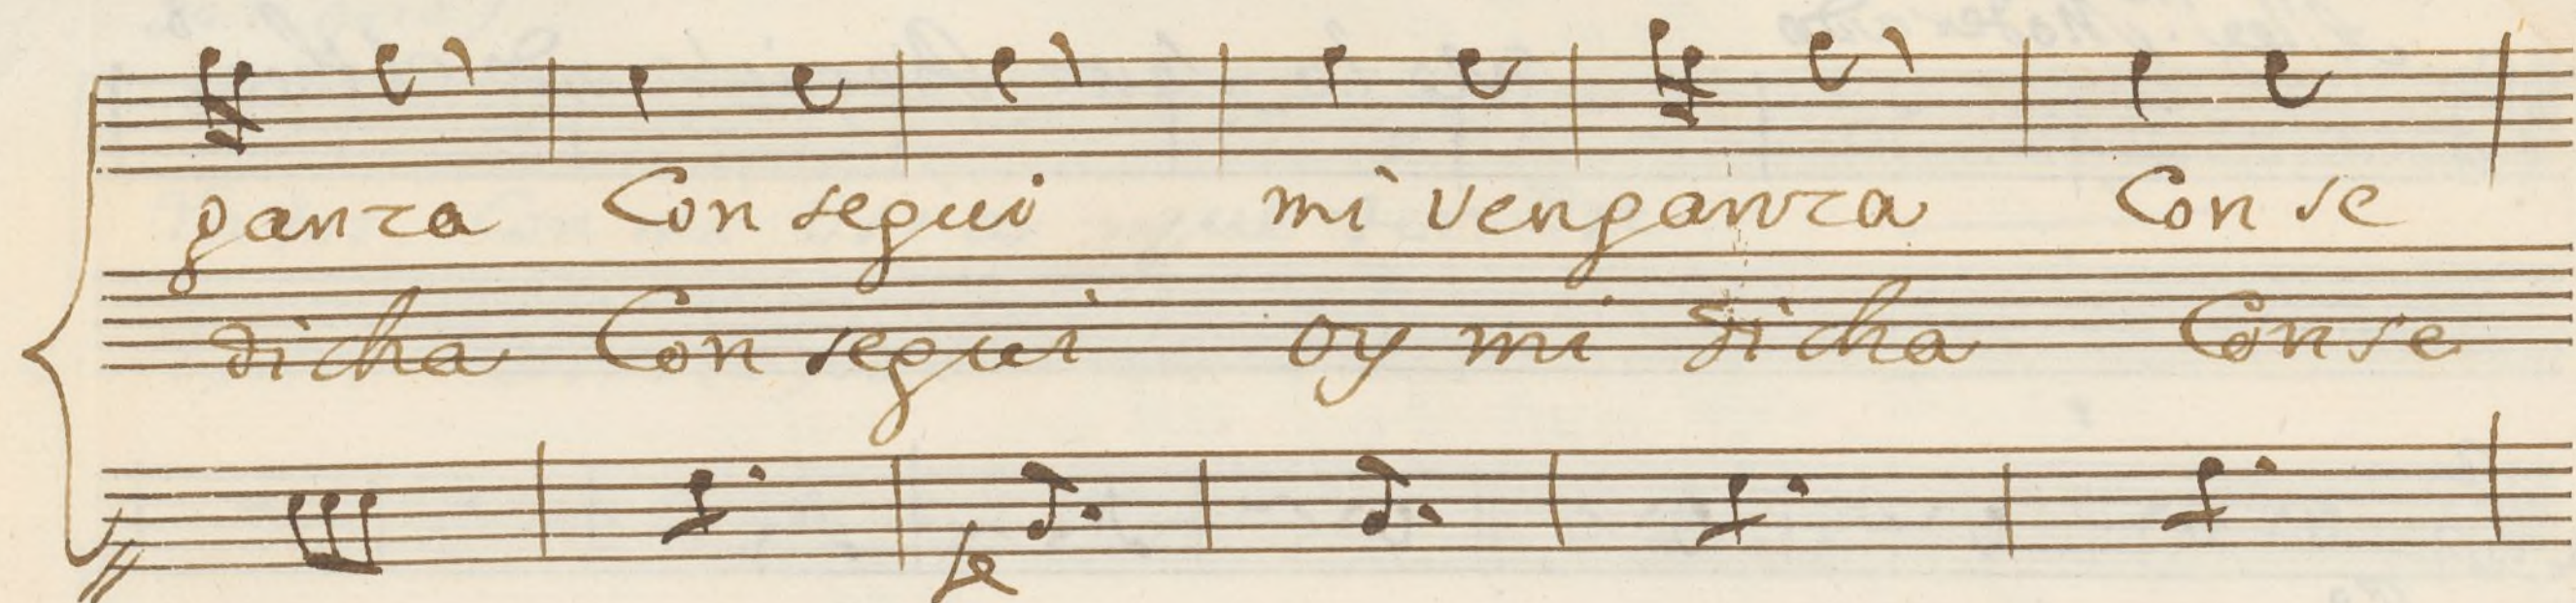 ganza Con segui mi venganza Con se
dicha Con segui oy mi dicha Conse